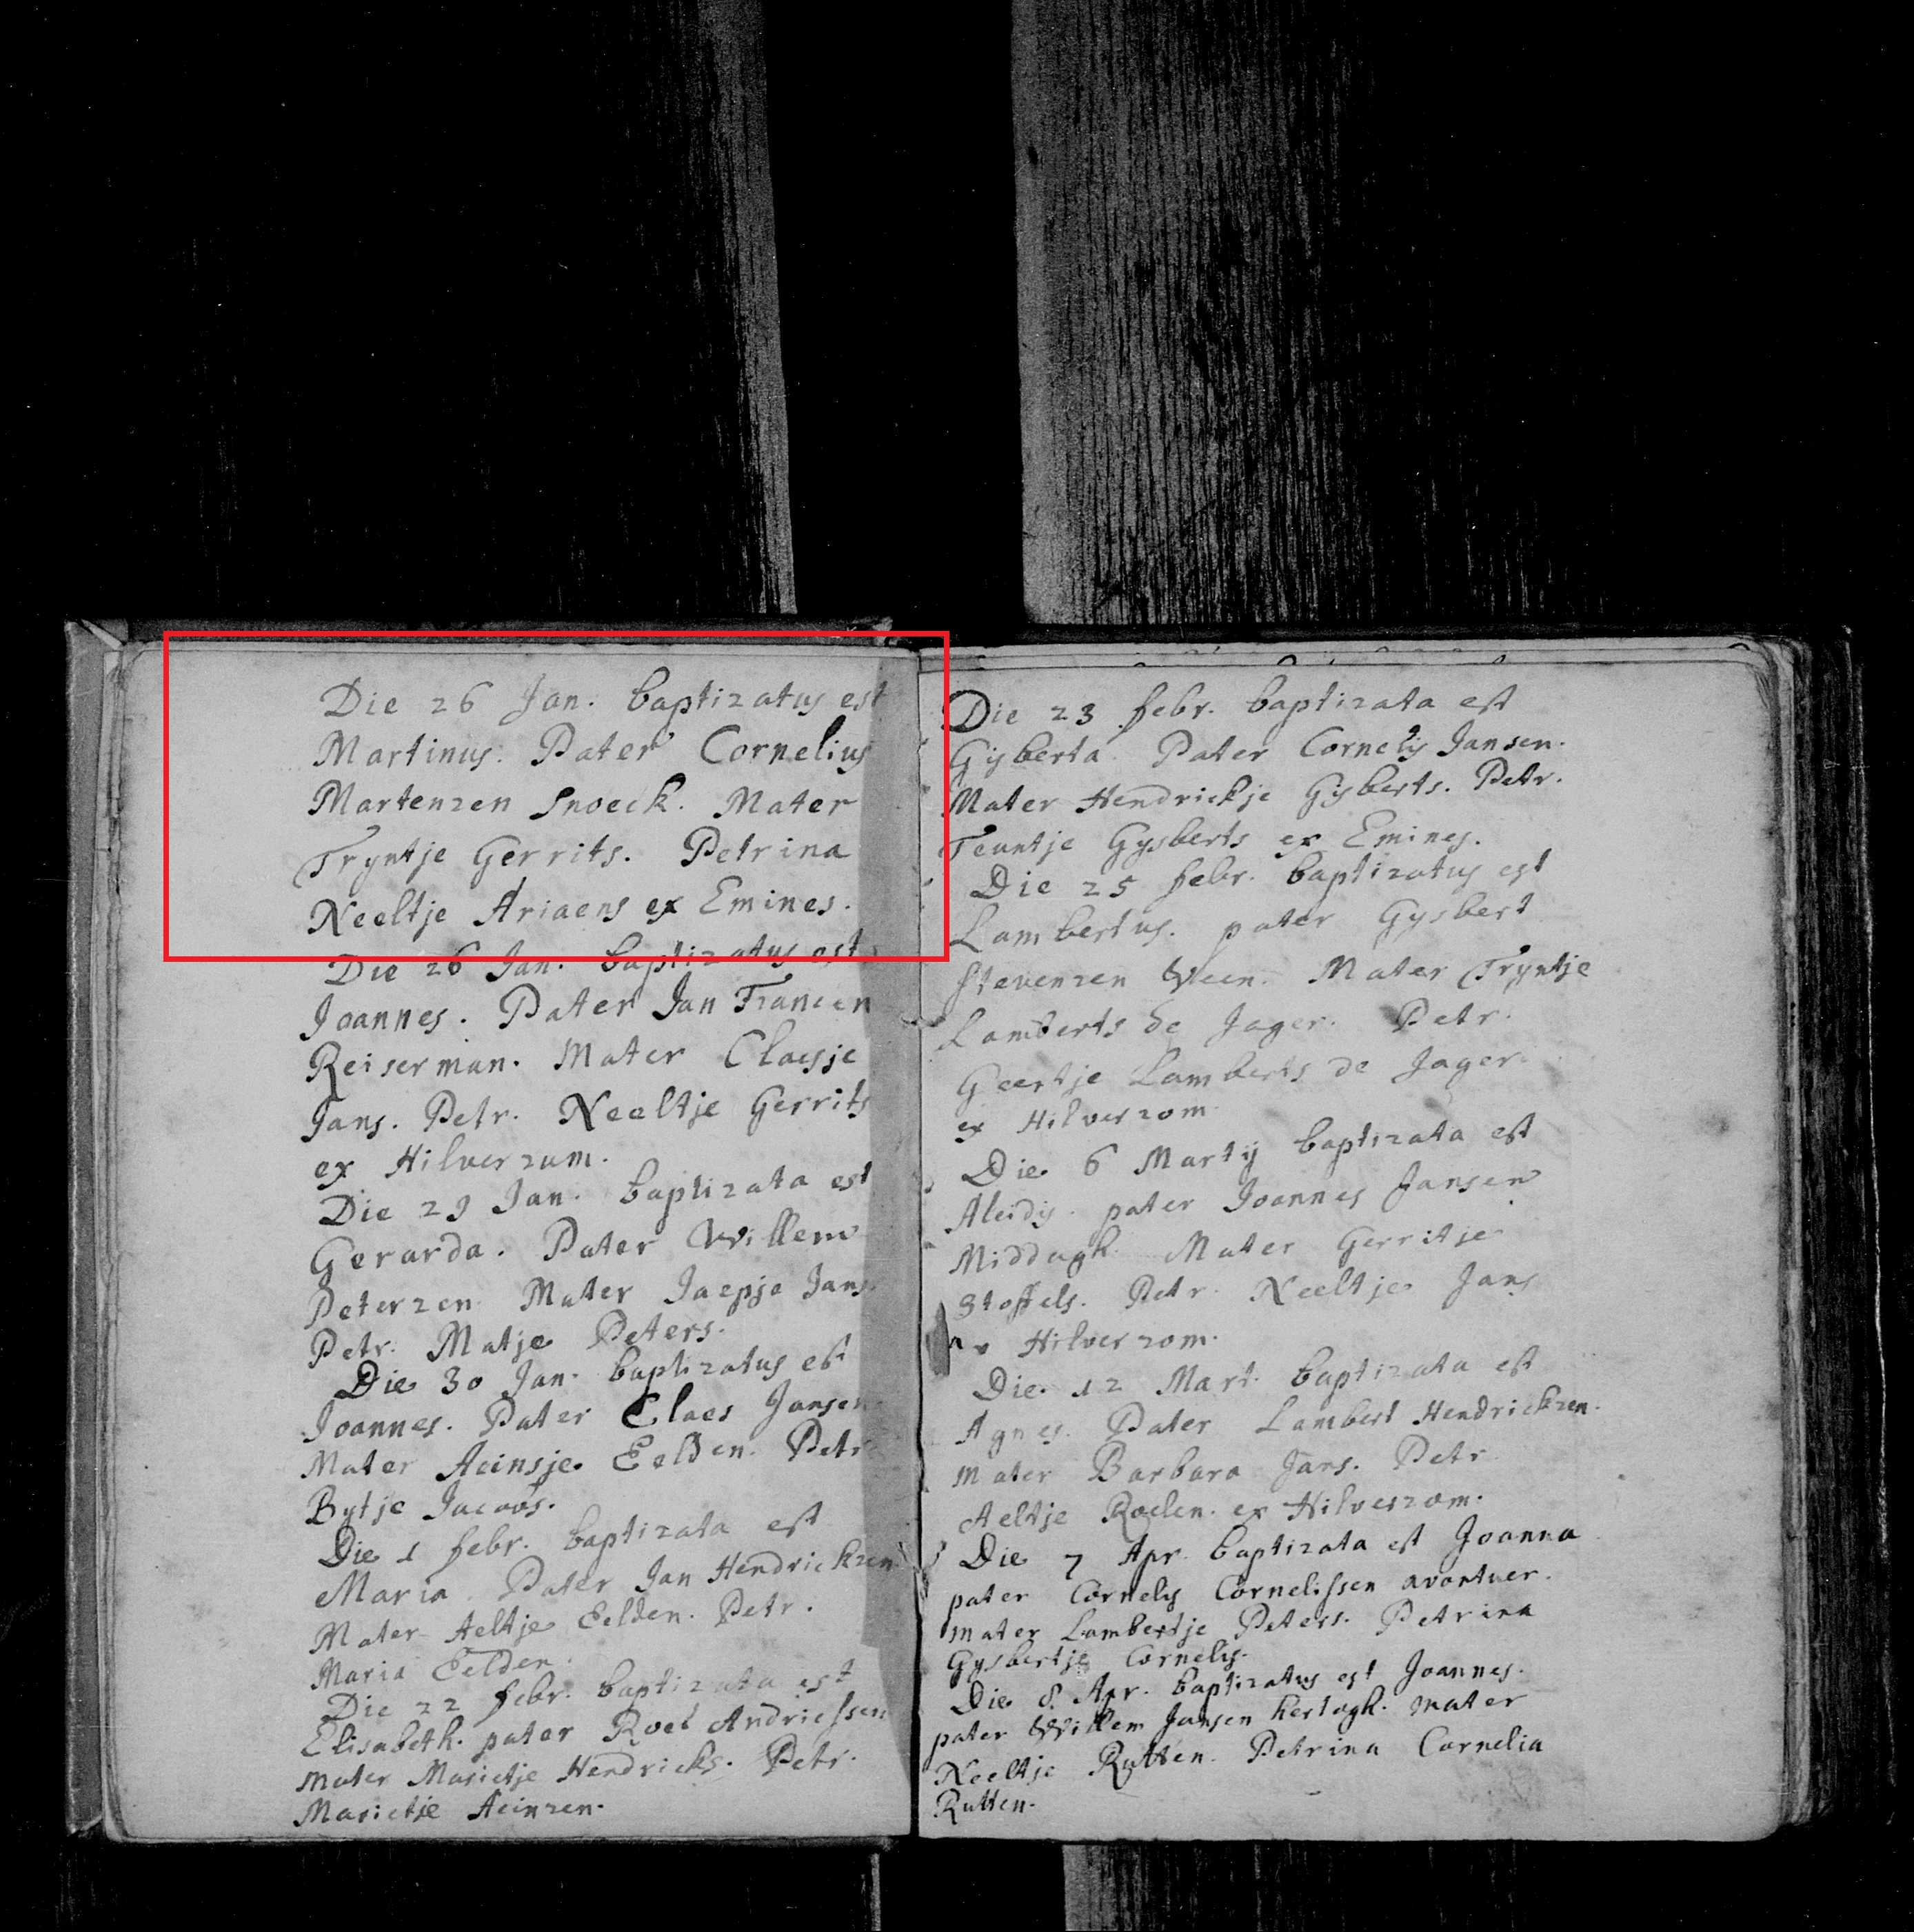 Die 26 Jan. baptizatus est
Martinus. Pater Cornelius
Martenzen Snoeck. Mater
Tryntje Gerrits. Petrina
Neeltje Ariaens ex Emines.
Die 26 Jan. baptizatus est
Joannes. Pater Jan Francen
Reiserman. Mater Claesje
Jans. Petr. Neeltje Gerrits
ex Hilverzum.
Die 29 Jan. baptizata est
Gerarda. Pater Willem
Peterzen Mater Jaepje Jans
Petr. Matje Peters.
Die 30 Jan. baptizatus est
Joannes. Pater Claes Jansen
Mater Aeinsje Eelden. Petr
Bytje Jacobs.
Die 1 febr. baptizata est
Maria Pater Jan Hendrickzen
Mater Aeltje Eelden. Petr.
Maria Eelden.
Die 22 febr. baptizata est
Elisabeth. pater Roel Andriessen
mater Marietje Hendricks. Petr.
Marietje Aeinzen.
Die 23 febr. baptizata est
Gijsberta Pater Cornelis Jansen.
Mater Hendrickje Gijsberts. Petr.
Teuntje Gysberts ex Emines.
Die 25 febr. baptizatus est
Lambertus. pater Gysbert
Stevenzen Veen. Mater Tryntje
Lamberts de Jager. Petr.
Geertje Lamberts de Jager.
ex Hilverzom
Die 6 Martij baptizata est
Aleidis. pater Joannes Jansen
Middagh. Mater Gerritje
Stoffels. Petr. Neeltje Jans
Hilverzom.
Die 12 Mart. baptizata est
Agnes. Pater Lambert Hendrickzen.
mater Barbara Jans. Petr
Aeltje Roelen. ex Hilverzom.
Die 7 Apr. baptizata est Joanna
pater Cornelis Cornelissen avontuer.
mater Lambertje Peters. Petrina
Gysbertje Cornelis.
Die 8 Apr. baptizatus est Joannes.
pater Willem Jansen hertogh. mater
Neeltje Rutten. Petrina Cornelia
Rutten.